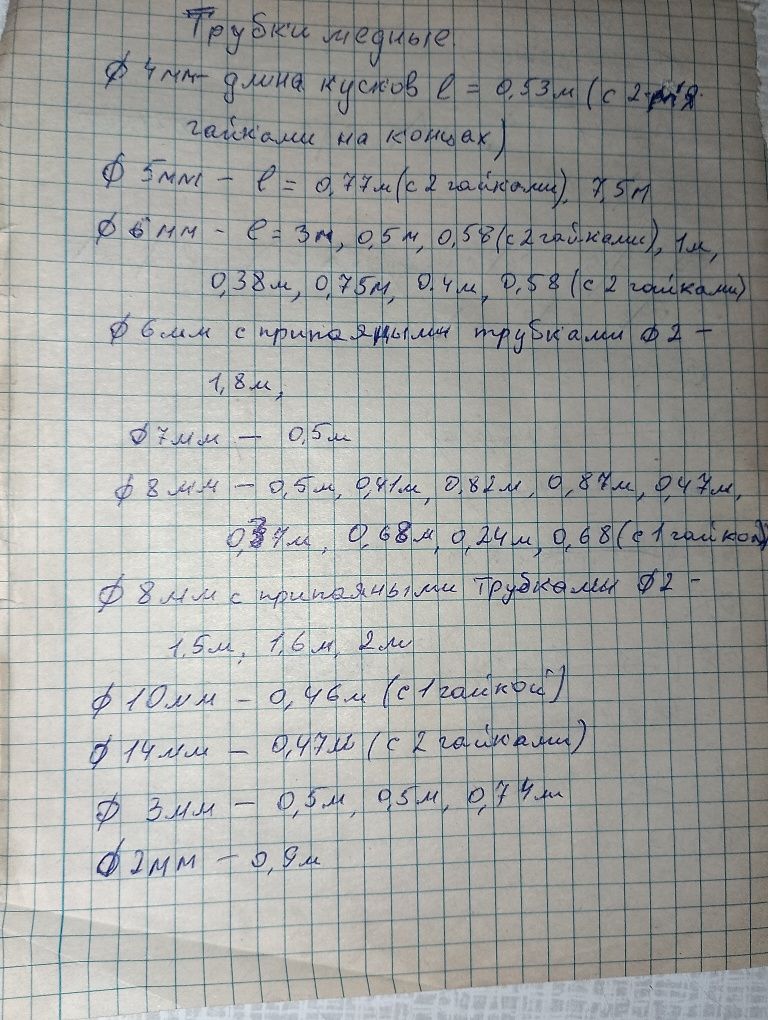 Трубки медные
ϕ 4мм - длина кусков l = 0,53м (с 2-мя
гайками на концах)
ϕ 5мм - l = 0,77м (с 2 гайками), 7,5м
ϕ 6мм - l = 3м, 0,5м, 0,58 (с 2 гайками), 1м,
0,38м, 0,75м, 0.4м, 0,58 (с 2 гайками)
ϕ 6мм с припаяными трубками ϕ 2 -
1,8м,
ϕ 7мм - 0,5м
ϕ 8мм - 0,5м, 0,41м, 0,82м, 0,87м, 0,47м,
0,37м, 0,68м, 0,24м, 0,68 (с 1 гайкой)
ϕ 8мм с припаяными трубками ϕ 2 -
1,5м, 1,6м, 2м
ϕ 10мм - 0,46м (с 1 гайкой)
ϕ 14мм - 0,47м (с 2 гайками)
ϕ 3мм - 0,5м, 0,5м, 0,74м
ϕ 2мм - 0,9м